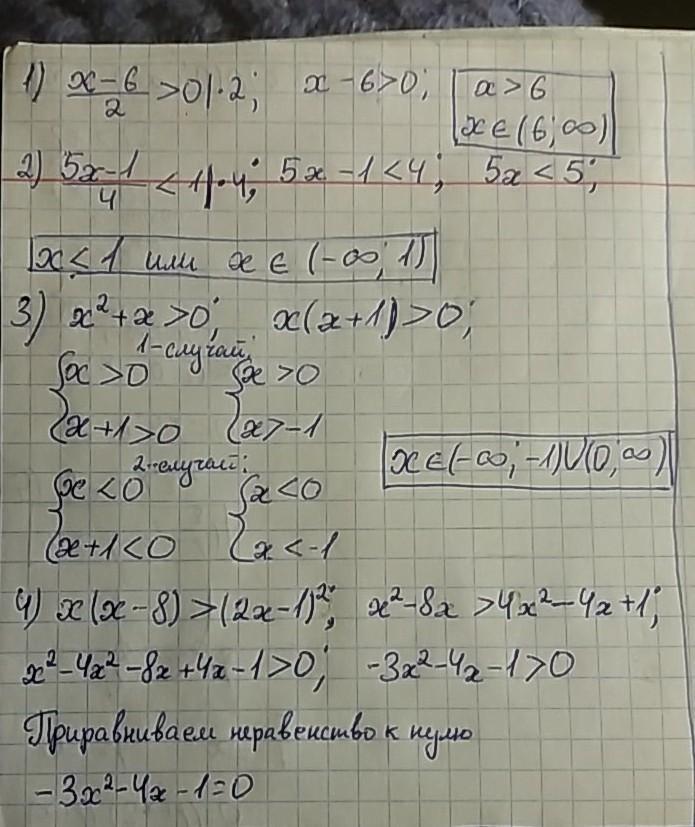 1) (x-6)/2 >0|·2; x-6>0; x>6
x∈(6;∞)
2) (5x-1)/4 < 1|·4; 5x-1<4; 5x<5;
x<1 или x ∈ (-∞; 1)
3) x²+x>0; x(x+1)>0;
1-случай:
{x>0 {x>0
{x+1>0 {x>-1
2-случай:
{x<0 {x<0
{x+1<0 {x<-1
x∈(-∞;-1)∪(0;∞)
4) x(x-8)>(2x-1)²; x²-8x>4x²-4x+1;
x²-4x²-8x+4x-1>0; -3x²-4x-1>0
Приравниваем неравенство к нулю
-3x²-4x-1=0